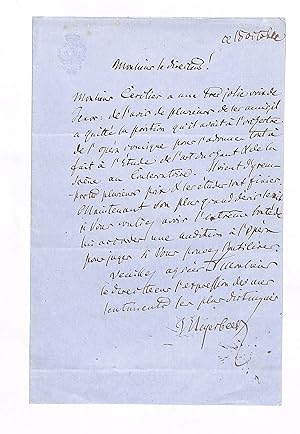 ce 15 octobre
Monsieur le directeur!
Monsieur Cerilier a une tres jolie voix de
Tenor, de l'avis de plusieurs de ses amis il
a quitté la position qu'il avait à l'orchestre
de l'opéra comique pour s'adonner tout à
fait à l'Etude de l'art du chant & de la
scène au Conservatoire. Il vient d'y rem-
porter plusieurs prix & ses études sont finies.
Maintenant son plus grand désir serait
si Vous vouliez avoir l'extrême bonté de
lui accorder une audition à l'opéra
pour juger si Vous pouvez l'utiliser.
Veuillez agréer Monsieur
le directeur l'expression de mes
sentiments les plus distingués
Meyerbeer